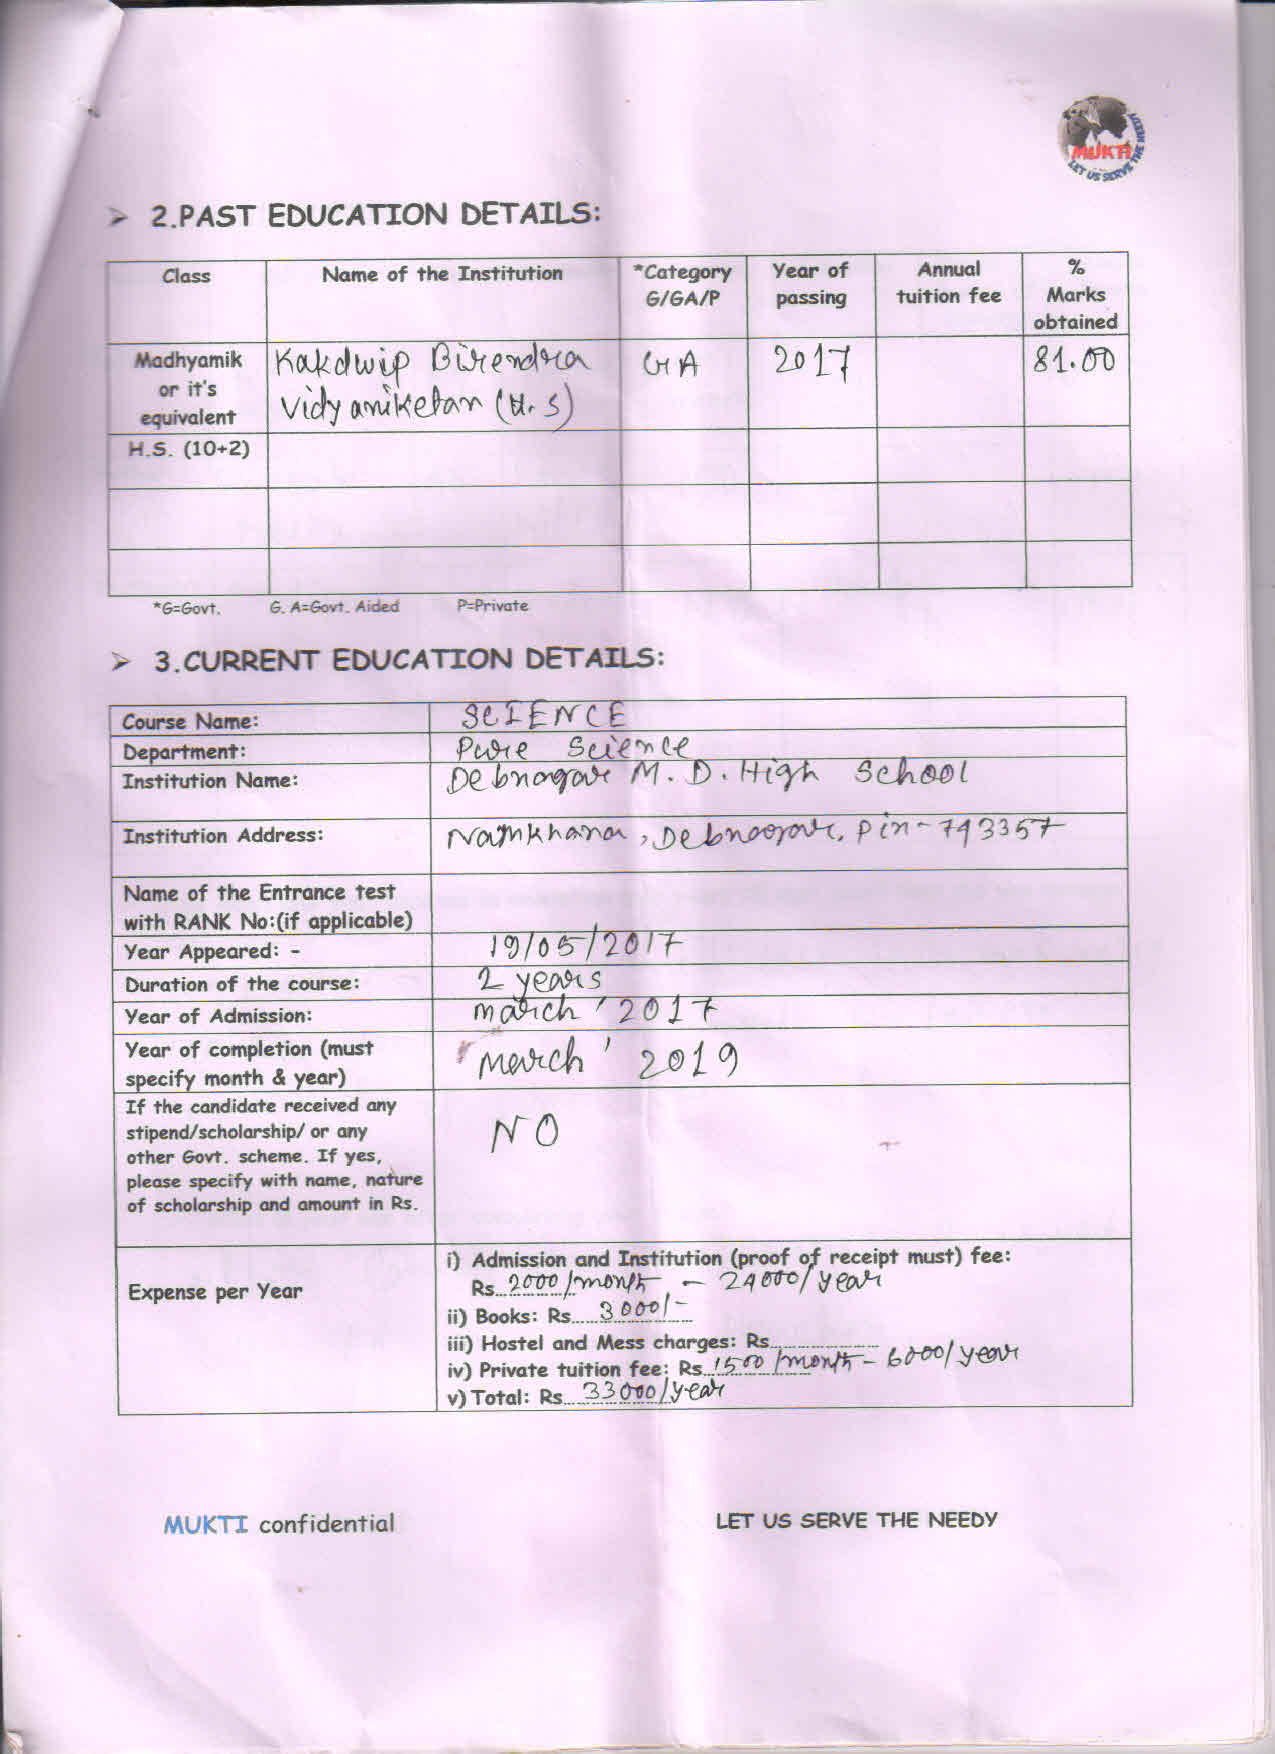 MUKTI
LET US SERVE THE NEEDY
➢ 2.PAST EDUCATION DETAILS:
Class Name of the Institution *Category G/GA/P Year of passing Annual tuition fee % Marks obtained
Madhyamik or it's equivalent Kakdwip Birendra Vidyaniketan (H.S) GA 2017 81.00
H.S. (10+2)
*G=Govt. G. A=Govt. Aided P=Private
➢ 3.CURRENT EDUCATION DETAILS:
Course Name: SCIENCE
Department: Pure Science
Institution Name: Debnagar M. D. High School
Institution Address: Namkhana, Debnagar, Pin - 743357
Name of the Entrance test
with RANK No:(if applicable)
Year Appeared: - 19/05/2017
Duration of the course: 2 years
Year of Admission: march ' 2017
Year of completion (must
specify month & year) March ' 2019
If the candidate received any
stipend/scholarship/ or any
other Govt. scheme. If yes,
please specify with name, nature
of scholarship and amount in Rs.
NO
Expense per Year
i) Admission and Institution (proof of receipt must) fee:
Rs...2000/month - 24000/year
ii) Books: Rs.....3000/-
iii) Hostel and Mess charges: Rs....................
iv) Private tuition fee: Rs..1500/month - 6000/year
v) Total: Rs...33000/year
MUKTI confidential LET US SERVE THE NEEDY